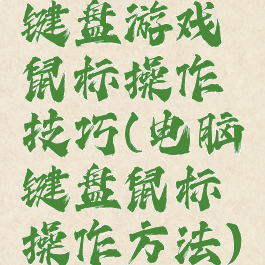 键盘游戏
鼠标操作
技巧(电脑
键盘鼠标
操作方法)